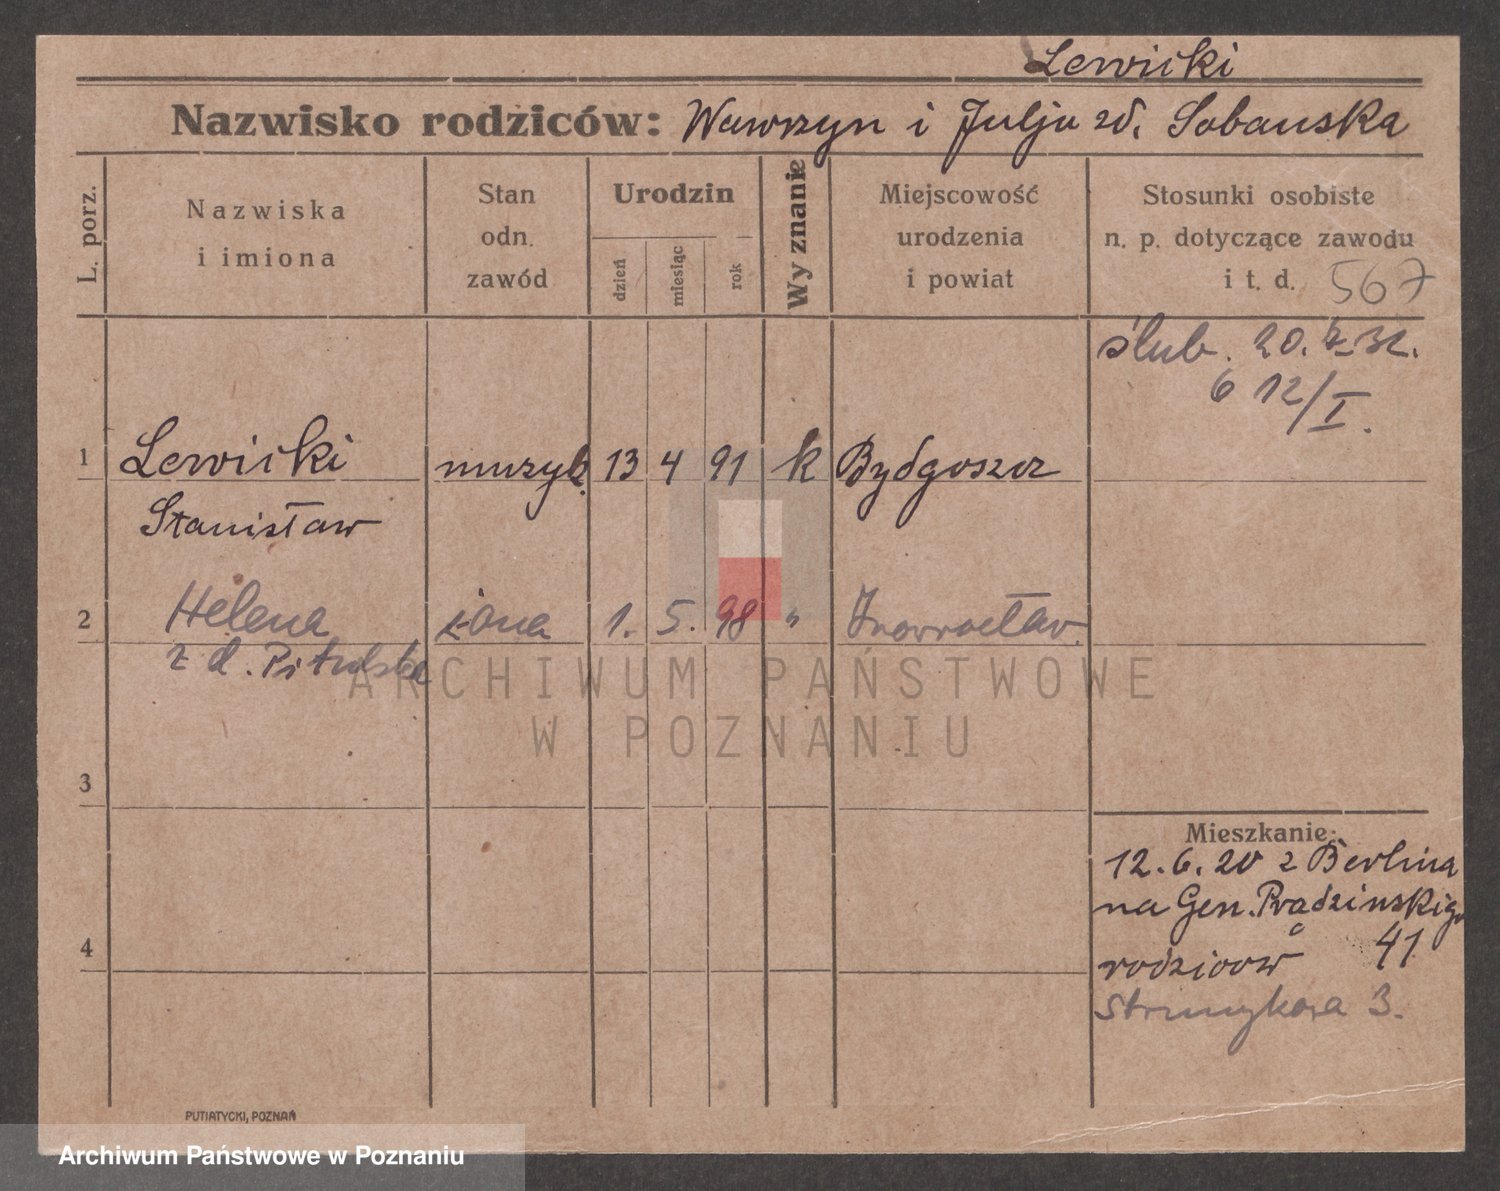 Lewicki
Nazwisko rodziców: Wawrzyn i Julja zd. Sobauska
L. porz.
Nazwiska
i imiona
Stan
odn.
zawód
Urodzin
dzień
miesiąc
rok
Wyznanie
Miejscowość
urodzenia
i powiat
Stosunki osobiste
n. p. dotyczące zawodu
i t. d. 567
ślub. 20. 32.
6 12/I.
1 Lewicki muzyk. 13 4 91 k Bydgoszcz
Stanisław
2 Helena żona 1. 5. 98 " Inowrocław.
z d. Pitulska
ARCHIWUM PAŃSTWOWE
W POZNANIU
3
Mieszkanie:
12.6.20 z Berlina
na Gen. Prądzinskiego
4
rodziców 41
Strumykowa 3.
PUTIATYCKI, POZNAŃ
Archiwum Państwowe w Poznaniu